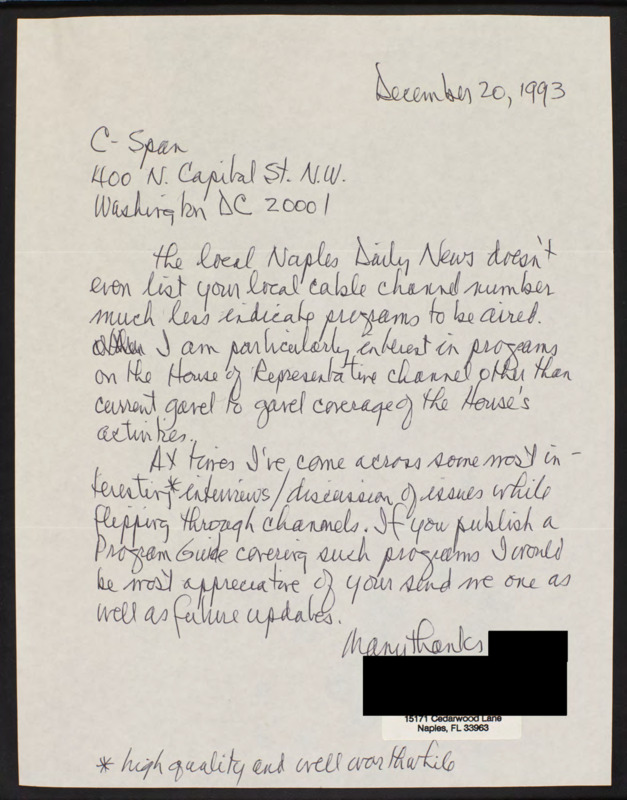 December 20, 1993
C-Span
400 N. Capital St. N.W.
Washington DC 20001
The local Naples Daily News doesn't
even list your local cable channel number
much less indicate programs to be aired.
I am particularly interest in programs
on the House of Representative channel other than
current gavel to gavel coverage of the House's
activities.
At times I've come across some most in-
teresting* interviews/discussion of issues while
flipping through channels. If you publish a
Program Guide covering such programs I would
be most appreciative of your send me one as
well as future updates.
Many thanks
15171 Cedarwood Lane
Naples, FL 33963
* high quality and well worthwhile